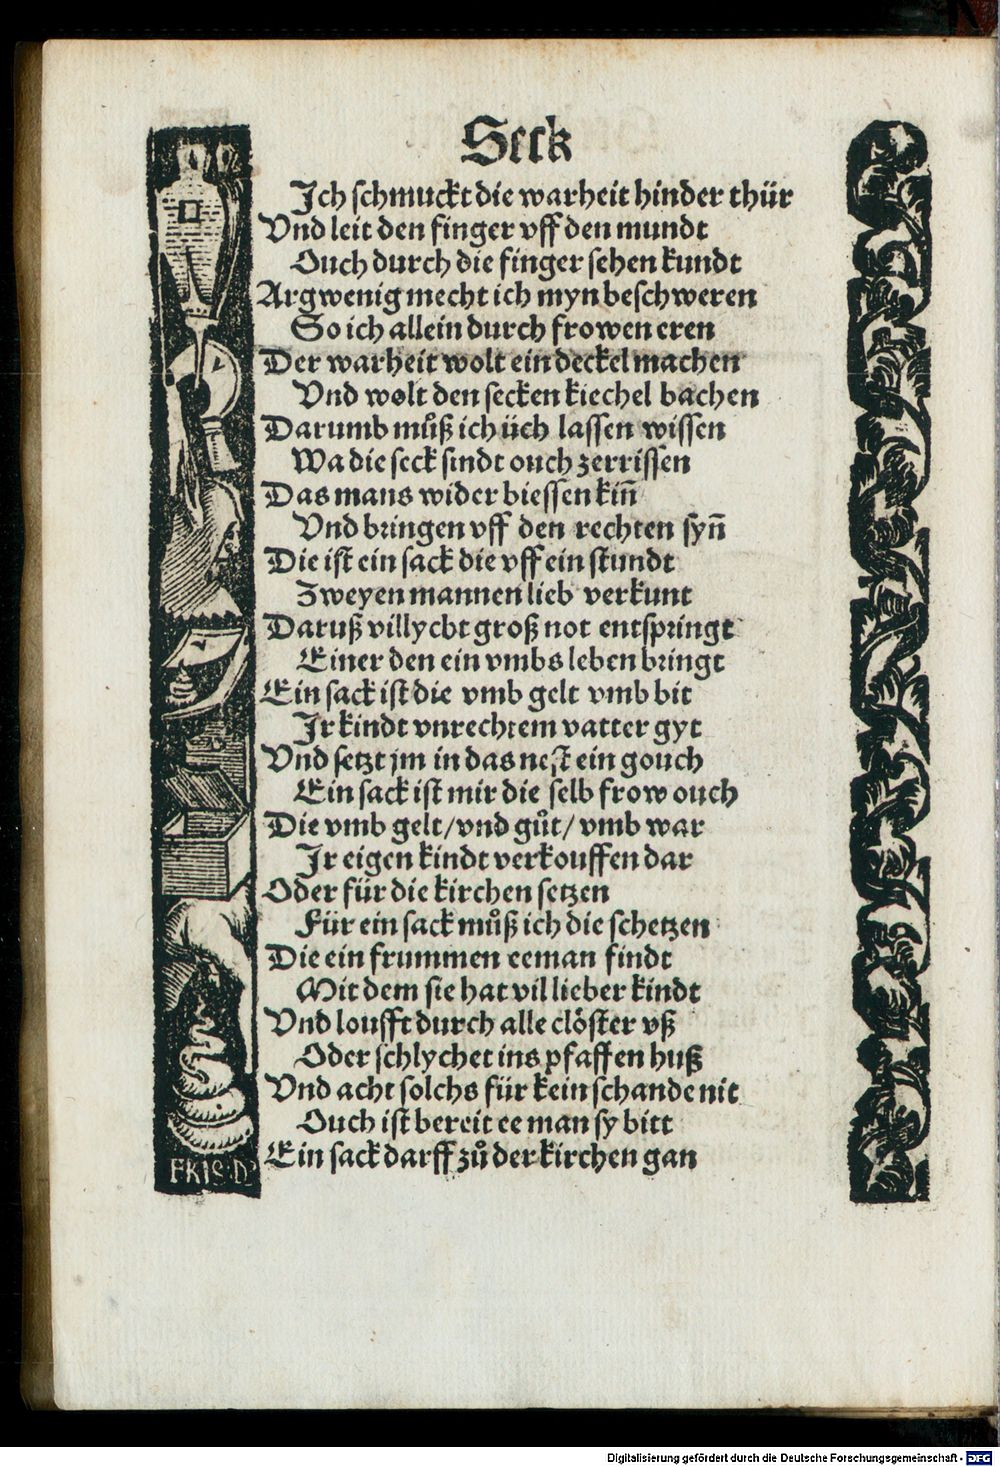 Seck
Ich schmuckt die warheit hinder thür
Vnd leit den finger vff den mundt
Ouch durch die finger sehen kundt
Argwenig mecht ich myn beschweren
So ich allein durch frowen eren
Der warheit wolt ein deckel machen
Vnd wolt den secken kiechel bachen
Darumb můß ich üch lassen wissen
Wa die seck sindt ouch zerrissen
Das mans wider biessen kiñ
Vnd bringen vff den rechten syñ
Die ist ein sack die vff ein stundt
Zweyen mannen lieb verkunt
Daruß villycht groß not entspringt
Einer den ein vmbs leben bringt
Ein sack ist die vmb gelt vmb bit
Ir kindt vnrechtem vatter gyt
Vnd setzt jm in das nest ein gouch
Ein sack ist mir die selb frow ouch
Die vmb gelt/vnd gůt/vmb war
Ir eigen kindt verkouffen dar
Oder für die kirchen setzen
Für ein sack můß ich die schetzen
Die ein frummen eeman findt
Mit dem sie hat vil lieber kindt
Vnd loufft durch alle clöster vß
Oder schlychet ins pfaffen huß
Vnd acht solchs für kein schande nit
Ouch ist bereit ee man sy bitt
Ein sack darff zů der kirchen gan
FRIS.D
Digitalisierung gefördert durch die Deutsche Forschungsgemeinschaft - DFG